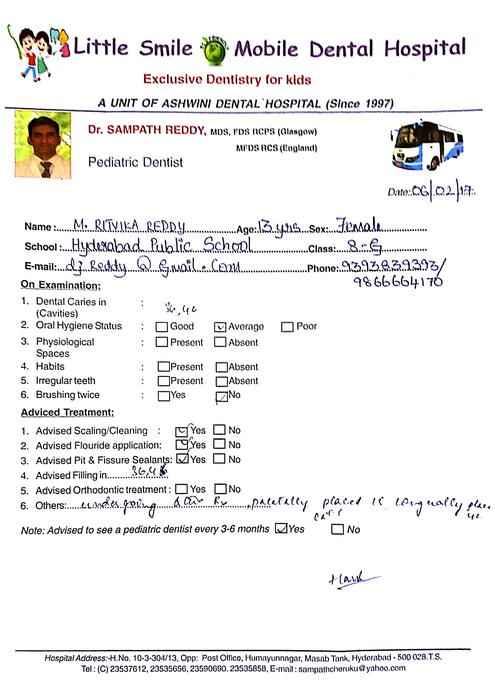 Little Smile Mobile Dental Hospital
Exclusive Dentistry for kids
A UNIT OF ASHWINI DENTAL HOSPITAL (Since 1997)
Dr. SAMPATH REDDY, MDS, FDS RCPS (Glasgow)
MFDS RCS (England)
Pediatric Dentist
Date: 06/02/17
Name: M. RITVIKA REDDY Age: 13 yrs Sex: Female
School: Hyderabad Public School Class: 8-G
E-mail: dj Reddy @ Gmail.Com Phone: 9393839393/
9866664170
On Examination:
1. Dental Caries in (Cavities) : 36,46
2. Oral Hygiene Status : Good Average Poor
3. Physiological Spaces : Present Absent
4. Habits : Present Absent
5. Irregular teeth : Present Absent
6. Brushing twice : Yes No
Adviced Treatment:
1. Advised Scaling/Cleaning : Yes No
2. Advised Flouride application: Yes No
3. Advised Pit & Fissure Sealants: Yes No
4. Advised Filling in 36,46
5. Advised Orthodontic treatment : Yes No
6. Others: undergoing palatally placed
Note: Advised to see a pediatric dentist every 3-6 months Yes No
Hospital Address:-H.No. 10-3-304/13, Opp: Post Office, Humayunnagar, Masab Tank, Hyderabad - 500 028.T.S.
Tel : (C) 23537612, 23535656, 23590690. 23535858, E-mail : sampathcheruku@yahoo.com